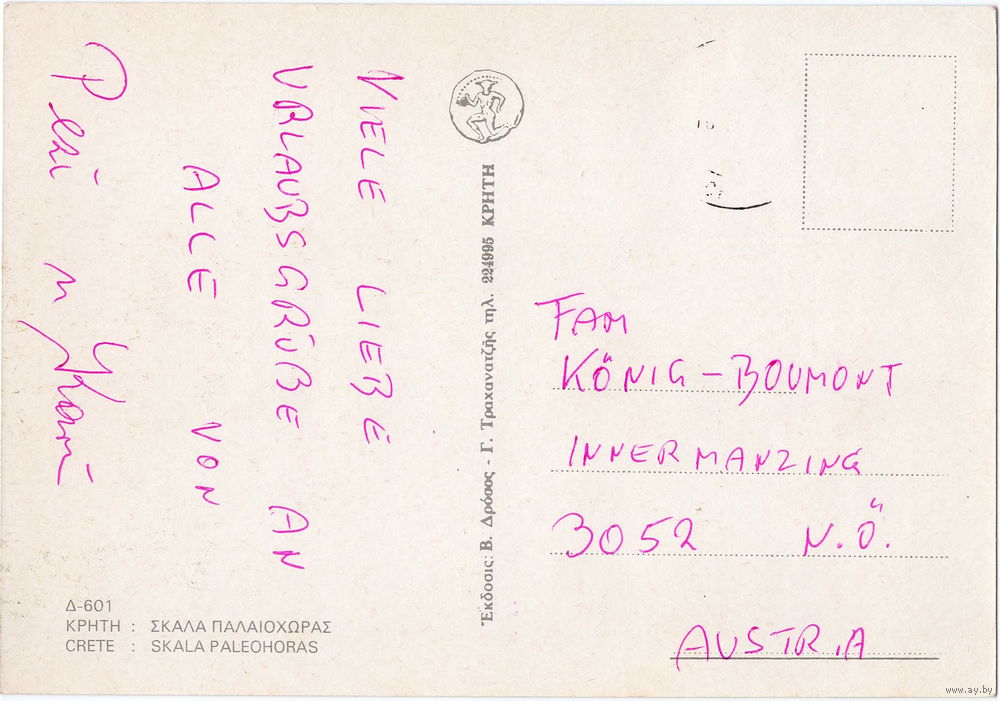 VIELE LIEBE
URLAUBSGRÜßE AN
ALLE VON
Δ-601
ΚΡΗΤΗ : ΣΚΑΛΑ ΠΑΛΑΙΟΧΩΡΑΣ
CRETE : SKALA PALEOHORAS
Ἔκδοσις: Β. Δρόσος - Γ. Τραχανατζῆς τηλ. 224995 ΚΡΗΤΗ
FAM
KÖNIG - BOUMONT
INNERMANZING
3052 N.Ö.
AUSTRIA
www.ay.by